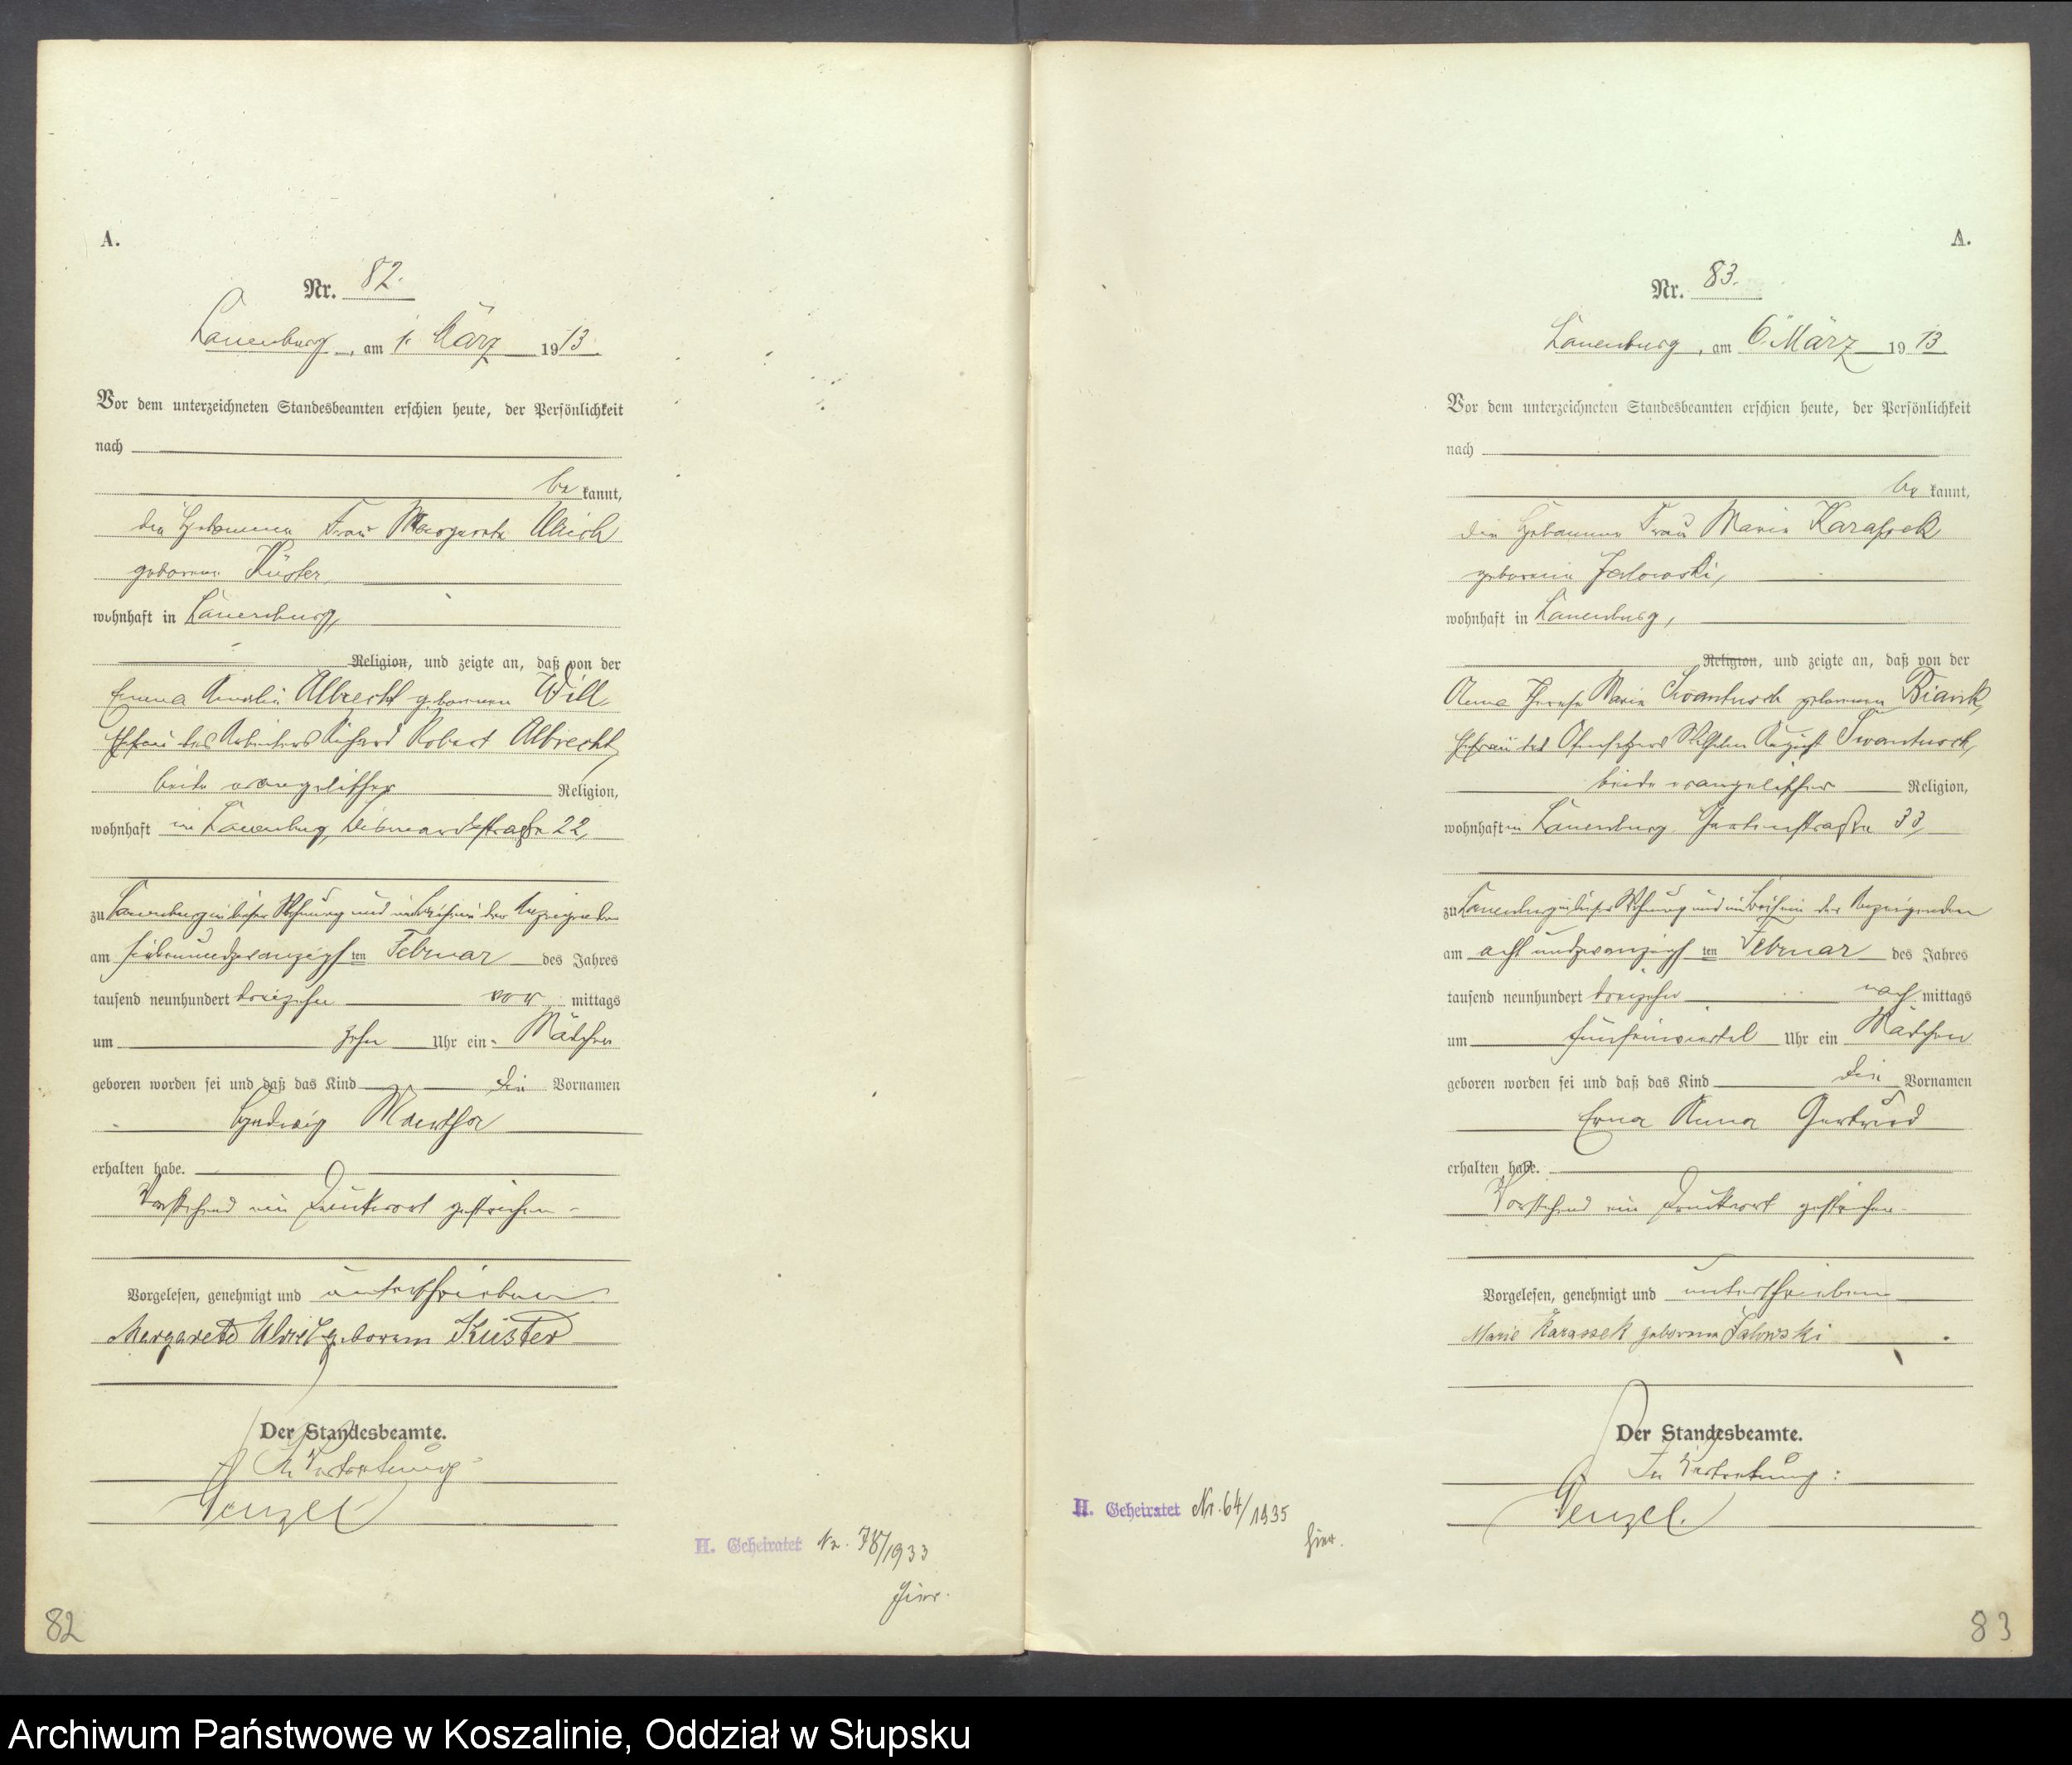 A.
Nr. 82.
Lauenburg, am 1. März 1913.
Vor dem unterzeichneten Standesbeamten erschien heute, der Persönlichkeit
nach
be kannt,
die Hebamme Frau Margarete Ulrich
geborene Küster,
wohnhaft in Lauenburg,
Religion, und zeigte an, daß von der
Emma Amalie Albrecht geborenen Will,
Ehefrau des Arbeiters Richard Robert Albrecht,
beide evangelischer Religion,
wohnhaft in Lauenburg, Bismarckstraße 22,
zu Lauenburg in dieser Wohnung und im Beisein der Anzeigenden
am siebenundzwanzigsten Februar des Jahres
tausend neunhundert dreizehn vor mittags
um zehn Uhr ein Mädchen
geboren worden sei und daß das Kind die Vornamen
Hedwig Martha
erhalten habe.
Vorstehend ein Druckwort gestrichen.
Vorgelesen, genehmigt und unterschrieben
Margarete Ulrich geborene Küster
Der Standesbeamte.
In Vertretung
Wenzel
H. Geheiratet Nr. 78/1933
hier.
82
A.
Nr. 83.
Lauenburg, am 6. März 1913
Vor dem unterzeichneten Standesbeamten erschien heute, der Persönlichkeit
nach
be kannt,
die Hebamme Frau Marie Karassek
geborene Jalowski,
wohnhaft in Lauenburg,
Religion, und zeigte an, daß von der
Anna Therese Marie Swantusch geborenen Biank,
Ehefrau des Ofensetzers Wilhelm August Swantusch,
beide evangelischer Religion,
wohnhaft in Lauenburg, Gartenstraße 33,
zu Lauenburg in dieser Wohnung und im Beisein der Anzeigenden
am achtundzwanzigsten Februar des Jahres
tausend neunhundert dreizehn nach mittags
um fünfeinviertel Uhr ein Mädchen
geboren worden sei und daß das Kind die Vornamen
Erna Anna Gertrud
erhalten habe.
Vorstehend ein Druckwort gestrichen.
Vorgelesen, genehmigt und unterschrieben
Marie Karassek geborene Jalowski
Der Standesbeamte.
In Vertretung:
Wenzel.
H. Geheiratet Nr. 64/1935
hier.
83
Archiwum Państwowe w Koszalinie, Oddział w Słupsku